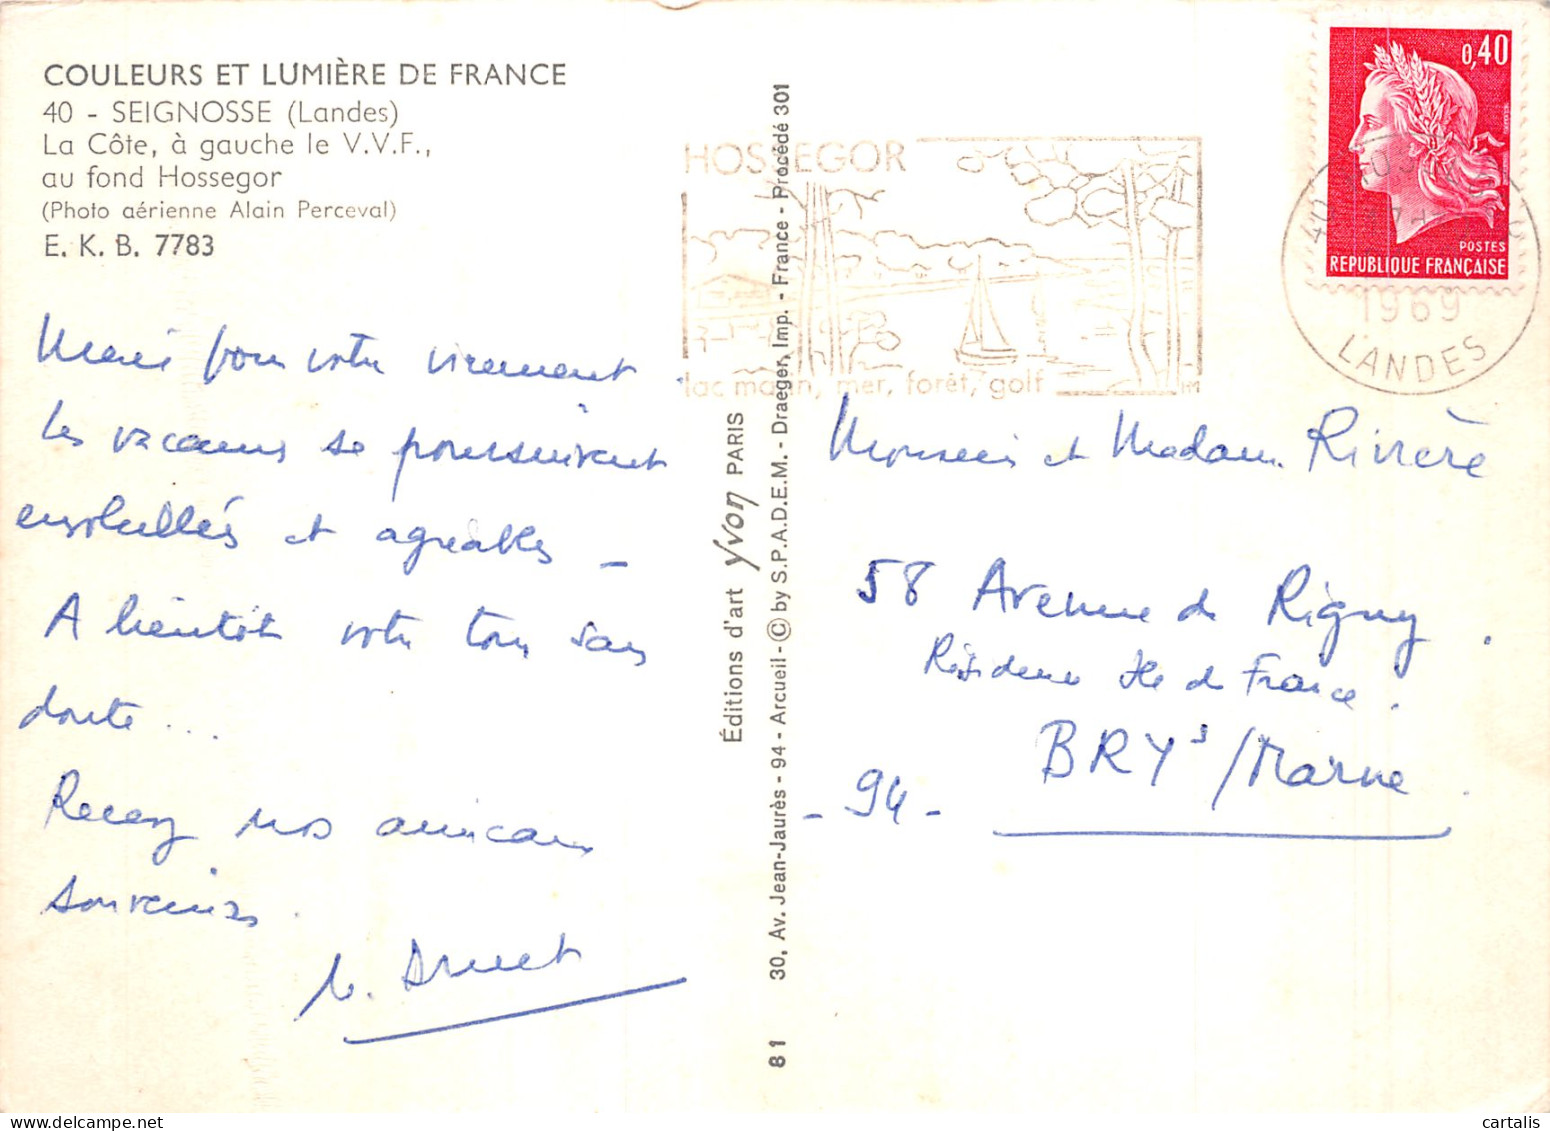 COULEURS ET LUMIÈRE DE FRANCE
40 - SEIGNOSSE (Landes)
La Côte, à gauche le V.V.F.,
au fond Hossegor
(Photo aérienne Alain Perceval)
E. K. B. 7783
Merci pour votre virement.
Les vacances se poursuivent
ensoleillées et agréables -
A bientôt votre tour sans
doute...
Recevez nos amicaux
souvenirs.
Druet
Éditions d'art yvon PARIS
81 30, Av. Jean-Jaurès - 94 - Arcueil - © by S.P.A.D.E.M. - Draeger, Imp. - France - Procédé 301
HOSSEGOR
lac marin, mer, forêt, golf
0,40
POSTES
REPUBLIQUE FRANÇAISE
1969
LANDES
Monsieur et Madame Rivière
58 Avenue de Rigny.
Résidence Ile de France.
BRY s/Marne.
- 94 -
cartalis